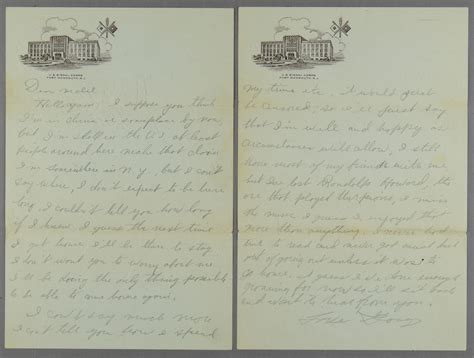 U.S. SIGNAL CORPS
FORT MONMOUTH, N.J.
Dear
Hello again, I suppose you think
I'm in China or someplace by now,
but I'm still in the U.S. at least
people around here make that claim
I'm somewhere in N.Y. but I can't
say where, I don't expect to be here
long, I couldn't tell you how long
if I knew. I guess the next time
I get home I'll be there to stay
I don't want you to worry about me
I'll be doing the only thing possible
to be able to come home again.
I can't say much more
I can't tell you how I spend
U.S. SIGNAL CORPS
FORT MONMOUTH, N.J.
my time etc. It would just
be censored; so I'll just say
that I'm well and happy as
circumstances will allow. I still
have most of my friends with me
but I've lost Howard, the
one that played the piano, I miss
the music I guess I enjoyed that
more than anything.
me to read and
of going out unless it
home, I guess I've done enough
for now so I'll sit back
and wait to hear from you.